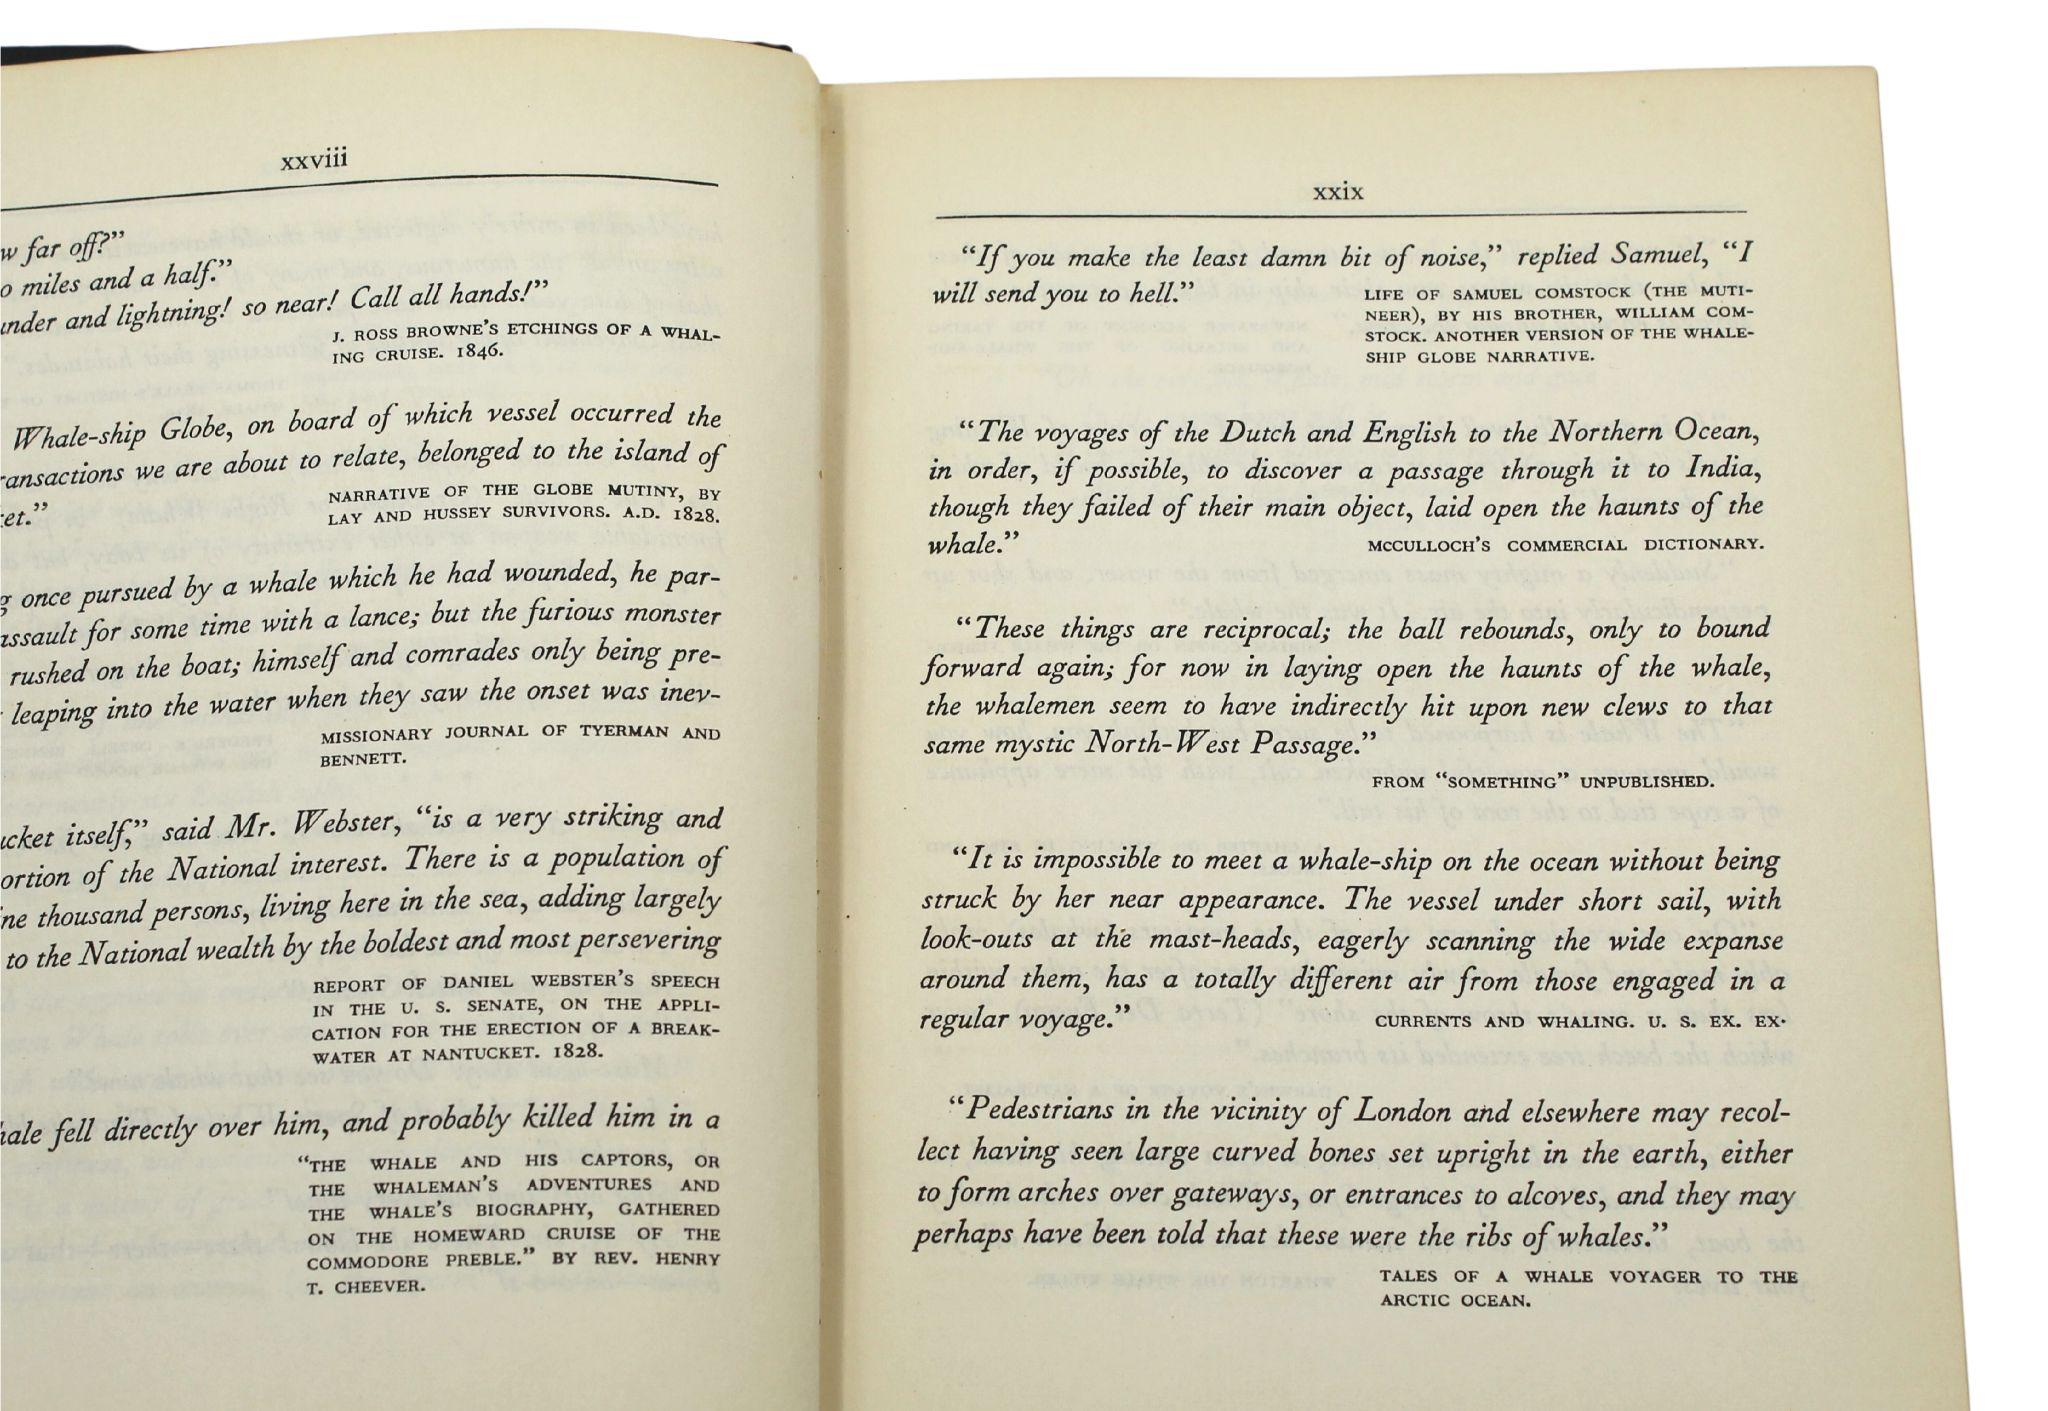 xxviii
far off?”
miles and a half.”
and lightning! so near! Call all hands!”
J. ROSS BROWNE’S ETCHINGS OF A WHAL-
ING CRUISE. 1846.
Whale-ship Globe, on board of which vessel occurred the
we are about to relate, belonged to the island of
NARRATIVE OF THE GLOBE MUTINY, BY
LAY AND HUSSEY SURVIVORS. A.D. 1828.
once pursued by a whale which he had wounded, he par-
assault for some time with a lance; but the furious monster
rushed on the boat; himself and comrades only being pre-
leaping into the water when they saw the onset was inev-
MISSIONARY JOURNAL OF TYERMAN AND
BENNETT.
itself,” said Mr. Webster, “is a very striking and
of the National interest. There is a population of
thousand persons, living here in the sea, adding largely
to the National wealth by the boldest and most persevering
REPORT OF DANIEL WEBSTER’S SPEECH
IN THE U. S. SENATE, ON THE APPLI-
CATION FOR THE ERECTION OF A BREAK-
WATER AT NANTUCKET. 1828.
fell directly over him, and probably killed him in a
“THE WHALE AND HIS CAPTORS, OR
THE WHALEMAN’S ADVENTURES AND
THE WHALE’S BIOGRAPHY, GATHERED
ON THE HOMEWARD CRUISE OF THE
COMMODORE PREBLE.” BY REV. HENRY
T. CHEEVER.
xxix
“If you make the least damn bit of noise,” replied Samuel, “I
will send you to hell.”
LIFE OF SAMUEL COMSTOCK (THE MUTI-
NEER), BY HIS BROTHER, WILLIAM COM-
STOCK. ANOTHER VERSION OF THE WHALE-
SHIP GLOBE NARRATIVE.
“The voyages of the Dutch and English to the Northern Ocean,
in order, if possible, to discover a passage through it to India,
though they failed of their main object, laid open the haunts of the
whale.” MCCULLOCH’S COMMERCIAL DICTIONARY.
“These things are reciprocal; the ball rebounds, only to bound
forward again; for now in laying open the haunts of the whale,
the whalemen seem to have indirectly hit upon new clews to that
same mystic North-West Passage.”
FROM “SOMETHING” UNPUBLISHED.
“It is impossible to meet a whale-ship on the ocean without being
struck by her near appearance. The vessel under short sail, with
look-outs at the mast-heads, eagerly scanning the wide expanse
around them, has a totally different air from those engaged in a
regular voyage.” CURRENTS AND WHALING. U. S. EX. EX.
“Pedestrians in the vicinity of London and elsewhere may recol-
lect having seen large curved bones set upright in the earth, either
to form arches over gateways, or entrances to alcoves, and they may
perhaps have been told that these were the ribs of whales.”
TALES OF A WHALE VOYAGER TO THE
ARCTIC OCEAN.